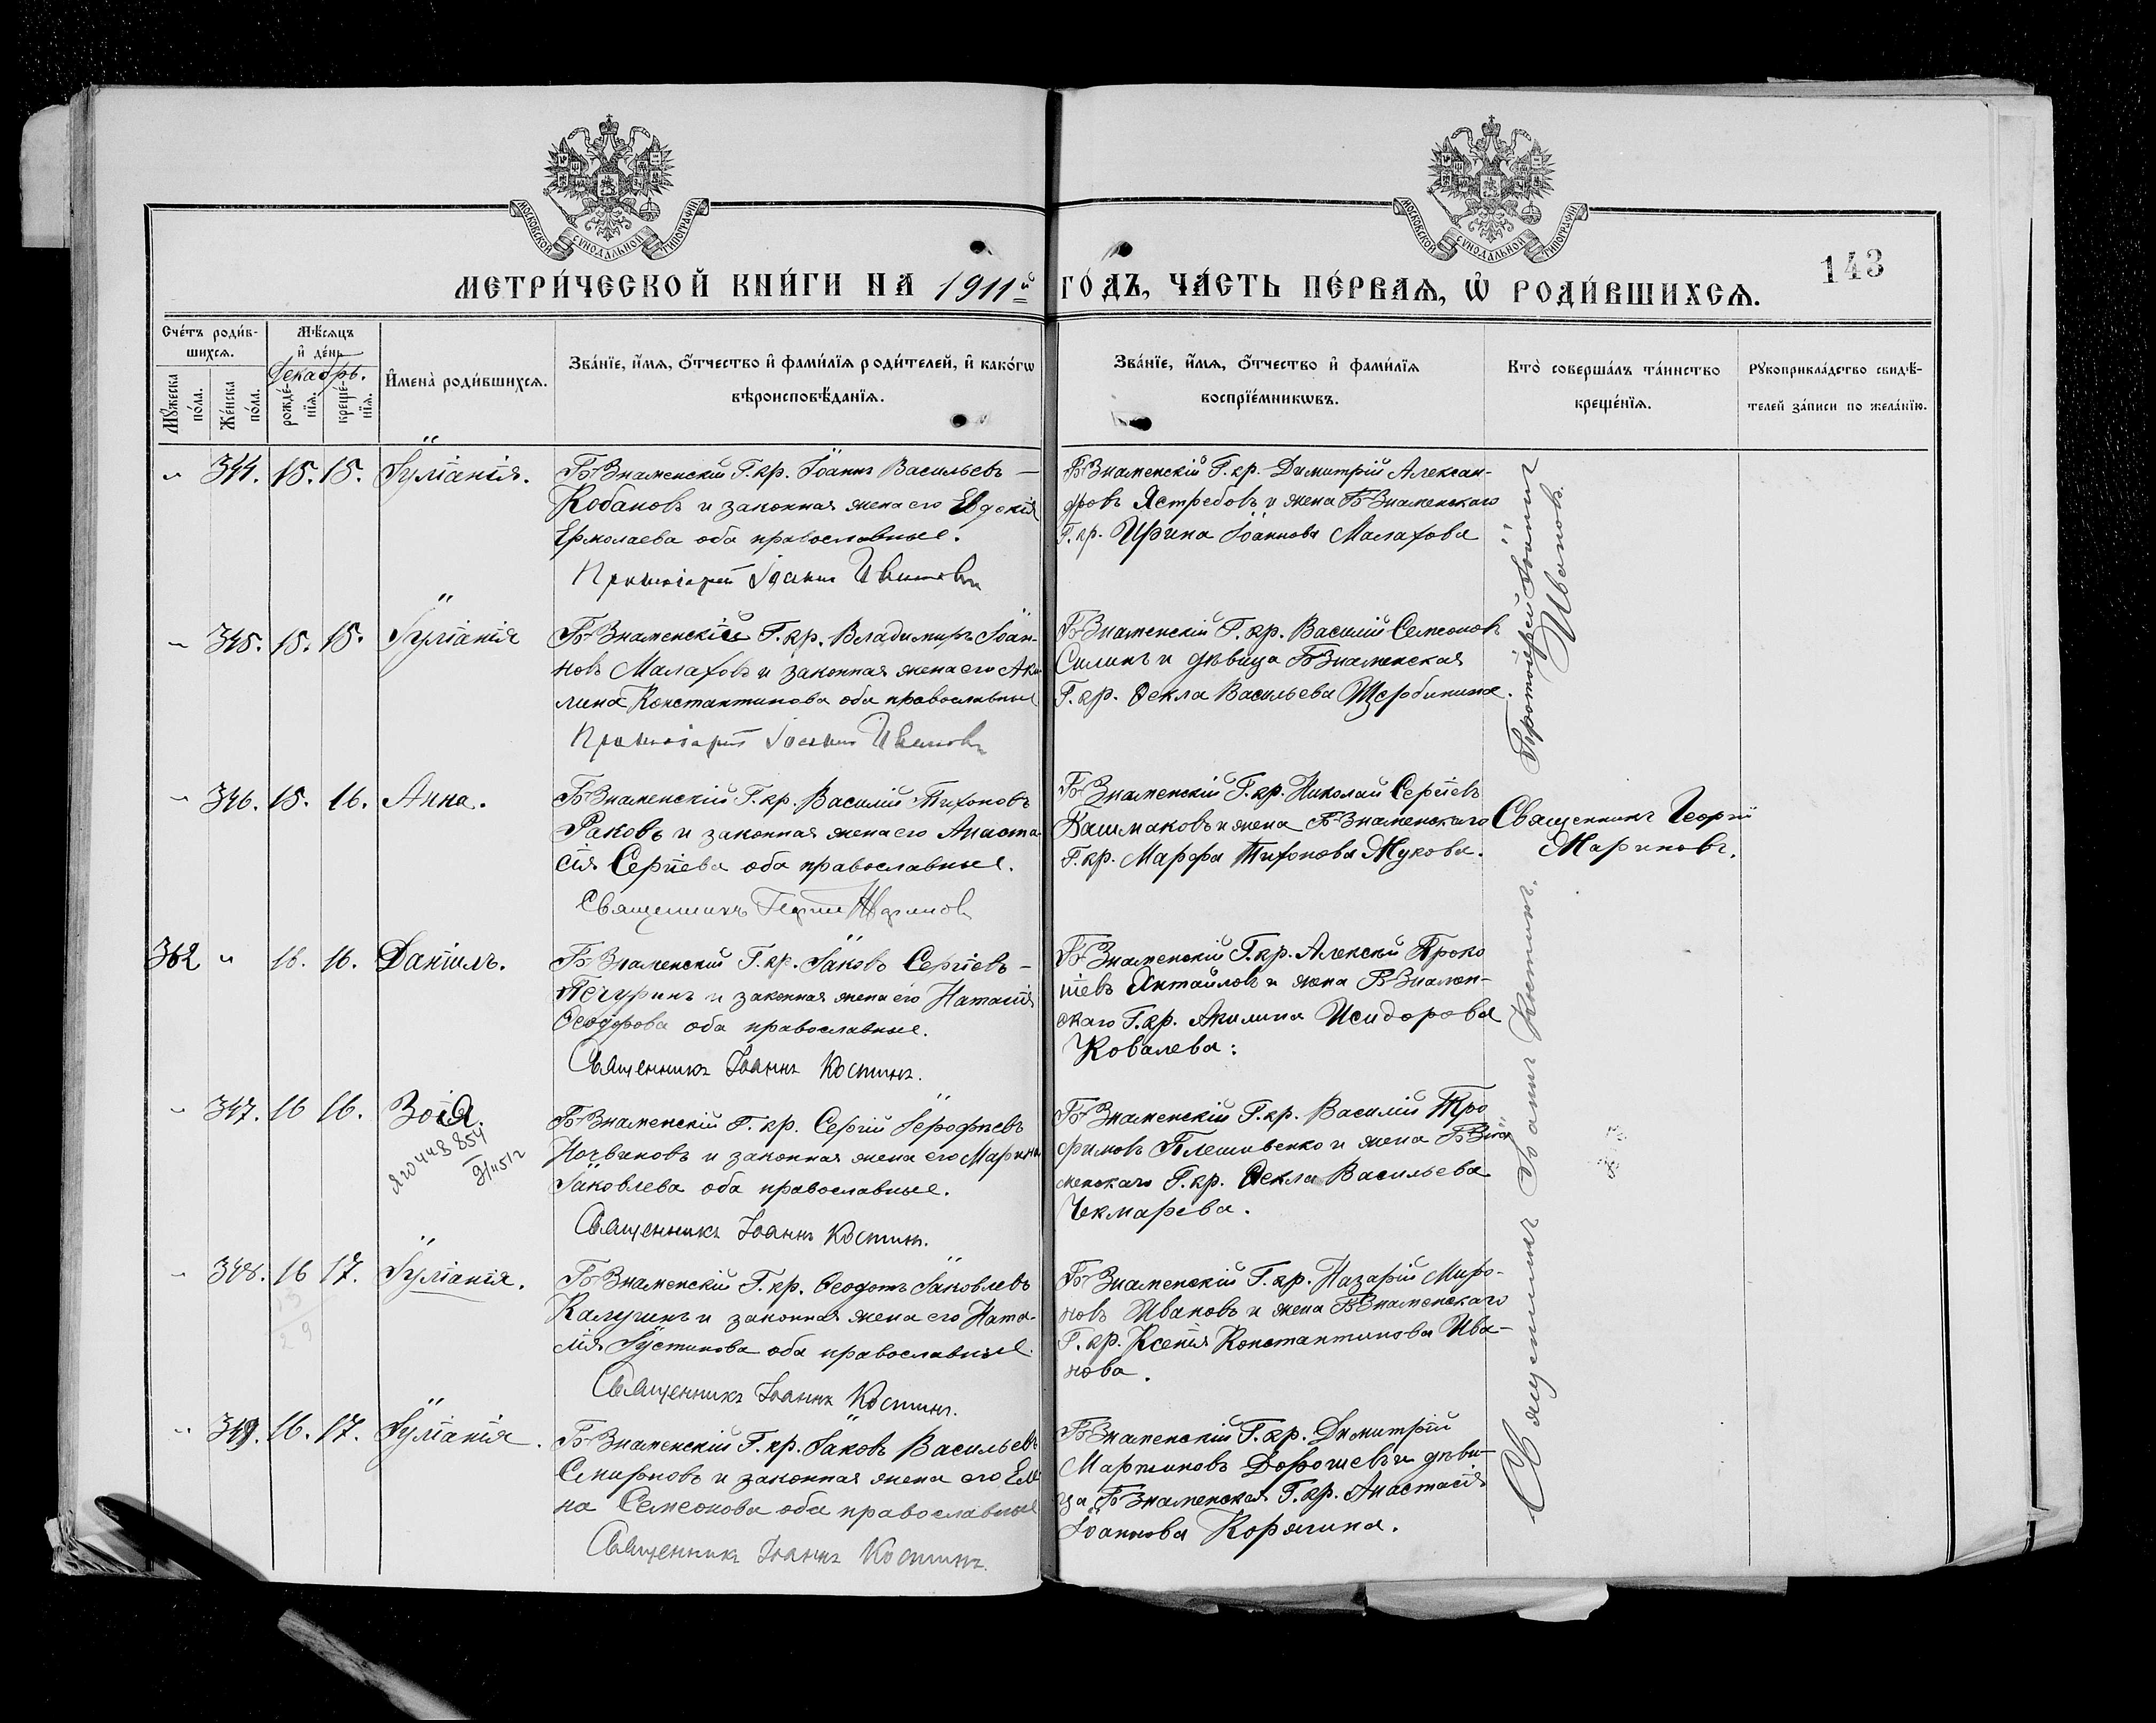 МОСКОВСКОЙ СѴНОДАЛЬНОЙ ТИПОГРАФІИ
МОСКОВСКОЙ СѴНОДАЛЬНОЙ ТИПОГРАФІИ
143
МЕТРИ́ЧЕСКОЙ КНИ́ГИ НА 1911й ГО́ДЪ, ЧА́СТЬ ПЕ́РВАѦ, Ѡ РОДИ́ВШИХСѦ.
Сче́тъ роди́в-
шихсѧ.
Мꙋжеска по́ла.
Же́нска по́ла.
Мѣ́сѧцъ
и҆ де́нь
Декабрь.
рожде́-
нїѧ.
креще́-
нїѧ.
И҆мена̀ роди́вшихсѧ.
Зва́нїе, и҆́мѧ, ѻ҆́тчество и҆ фами́лїѧ роди́телей, и҆ како́гѡ
вѣроисповѣ́данїѧ.
Зва́нїе, и҆́мѧ, ѻ҆́тчество и҆ фами́лїѧ
воспрїе́мникѡвъ.
Кто̀ соверша́лъ та́инство
креще́нїѧ.
Рꙋкоприкла́дство свидѣ́-
телей за́писи по жела́нїю.
" 344. 15. 15. Іуліанія.
Б-Знаменскій Г. кр. Іоаннъ Васильевъ —
Кобановъ и законная жена его Евдокія
Ермолаева оба православные.
Протоіерей Іоаннъ Ивановъ
Б-Знаменскій Г. кр. Димитрій Алексан-
дровъ Ястребовъ и жена Б-Знаменскаго
Г. кр. Ирина Іоаннова Малахова
Протоіерей Іоаннъ
Ивановъ.
" 345. 15. 15. Іуліанія
Б-Знаменскій Г. кр. Владимиръ Іоан-
новъ Малаховъ и законная жена его Аки
лина Константинова оба православные
Протоіерей Іоаннъ Ивановъ
Б-Знаменскій Г. кр. Василій Семеоновъ
Силинъ и дѣвица Б-Знаменская
Г. кр. Ѳекла Васильева Щербинина.
" 346. 15. 16. Анна.
Б-Знаменскій Г. кр. Василій Тихоновъ
Раковъ и законная жена его Анаста-
сія Сергіева оба православные.
Священникъ Георгій Мариновъ
Б-Знаменскій Г. кр. Николай Сергіевъ
Башмаковъ и жена Б-Знаменскаго
Г. кр. Марфа Тихонова Жукова.
Священникъ Георгій
Мариновъ.
362 " 16. 16. Даніилъ.
Б-Знаменскій Г. кр. Іаковъ Сергіевъ —
Печуринъ и законная жена его Наталія
Ѳеодорова оба православные.
Священникъ Іоаннъ Костинъ.
Б-Знаменскій Г. кр. Алексѣй Проко
піевъ и жена Б-Знамен-
скаго Г. кр. Акилина Исидорова
Ковалева:
Священникъ Іоаннъ Костинъ.
" 347. 16 16. Зоія.
Б-Знаменскій Г. кр. Сергій Іероѳеевъ
и законная жена его Марина
Іаковлева оба православные.
Священникъ Іоаннъ Костинъ.
Б-Знаменскій Г. кр. Василій Тро
фимовъ Плешивенко и жена Б-Зна
менскаго Г. кр. Ѳекла Васильева
Чекмарева.
" 348. 16 17. Іуліанія.
Б-Знаменскій Г. кр. Ѳеодотъ Іаковлевъ
Калугинъ и законная жена его Ната-
лія Іустинова оба православные.
Священникъ Іоаннъ Костинъ.
Б-Знаменскій Г. кр. Назарій Миро-
новъ Ивановъ и жена Б-Знаменскаго
Г. кр. Ксенія Константинова Ива-
нова.
" 349. 16. 17. Іуліанія.
Б-Знаменскій Г. кр. Іаковъ Васильевъ
Смирновъ и законная жена его Еле
на Семеонова оба православные
Священникъ Іоаннъ Костинъ.
Б-Знаменскій Г. кр. Димитрій
Мартиновъ Дорошевъ и дѣви-
ца Б-Знаменская Г. кр. Анастасія
Іоаннова Корягина.